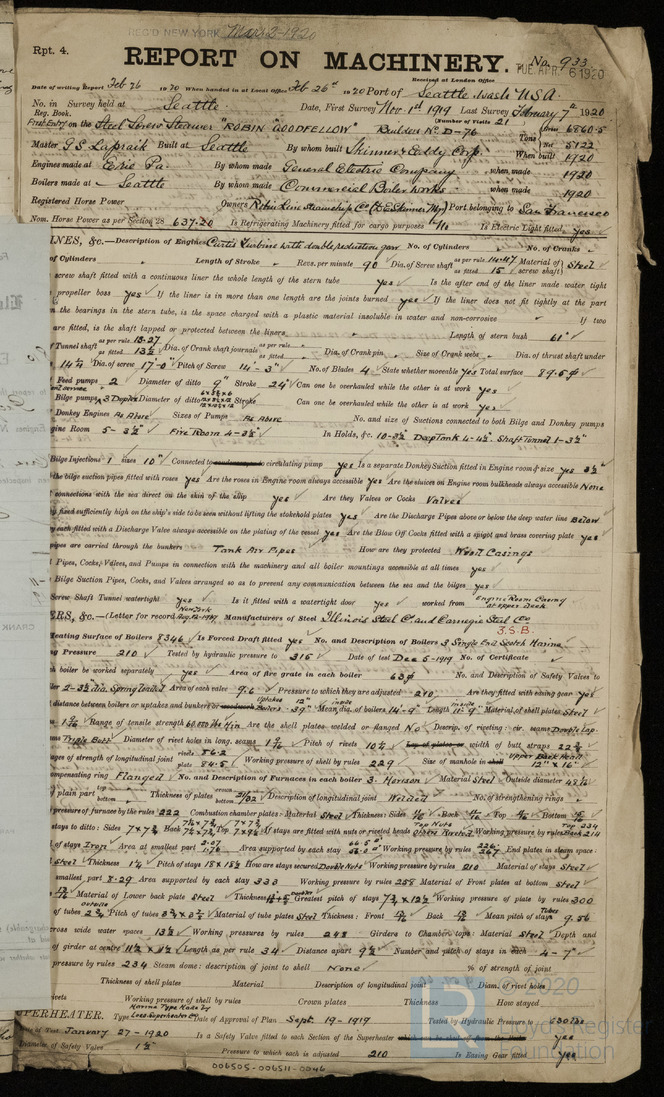 REC'D NEW YORK Mar 2-1920
Rpt. 4.
REPORT ON MACHINERY.
No. 933
TUE. APR 6 1920
Received at London Office
Date of writing Report Feb 26 1920 When handed in at Local Office Feb 26th 1920 Port of Seattle Wash USA.
No. in Survey held at Seattle. Date, First Survey Nov 1st 1919 Last Survey February 7th 1920
Reg. Book.
(Number of Visits 21
First Entry on the Steel Screw Steamer "ROBIN GOODFELLOW" Builders No D-76
Tons Gross 6860.5
Net 5122
Master GS Lapraik Built at Seattle By whom built Skinner & Eddy Corp. When built 1920
Engines made at Erie Pa. By whom made General Electric Company when made 1920
Boilers made at Seattle By whom made Commercial Boiler Works when made 1920
Registered Horse Power Owners Robin Line Steamship Co Port belonging to San Francisco
Nom. Horse Power as per Section 28 637.20 Is Refrigerating Machinery fitted for cargo purposes No Is Electric Light fitted Yes
INES, &c.—Description of Engines Curtis Turbine with double reduction gear No. of Cylinders No. of Cranks
of Cylinders Length of Stroke Revs. per minute 90 Dia. of Screw shaft as per rule 14.47 as fitted 15" Material of screw shaft Steel
screw shaft fitted with a continuous liner the whole length of the stern tube yes Is the after end of the liner made water tight
propeller boss yes If the liner is in more than one length are the joints burned yes If the liner does not fit tightly at the part
n the bearings in the stern tube, is the space charged with a plastic material insoluble in water and non-corrosive If two
are fitted, is the shaft lapped or protected between the liners Length of stern bush 61"
Tunnel shaft as per rule 13.27 as fitted 13½ Dia. of Crank shaft journals as per rule as fitted Dia. of Crank pin Size of Crank webs Dia. of thrust shaft under
14¼ Dia. of screw 17-0" Pitch of Screw 14-3" No. of Blades 4 State whether moveable yes Total surface 89.6
Feed pumps 2 Diameter of ditto 9" Stroke 24" Can one be overhauled while the other is at work yes
Bilge pumps 3 Duplex Diameter of ditto Can one be overhauled while the other is at work yes
Donkey Engines As Above Sizes of Pumps As Above No. and size of Suctions connected to both Bilge and Donkey pumps
gine Room 5-3½" Fire Room 4-3½" In Holds, &c. 10-3½ Deep Tank 4-4½" Shaft Tunnel 1-3½"
Bilge Injections 1 sizes 10" Connected to circulating pump yes Is a separate Donkey Suction fitted in Engine room & size yes 3½"
the bilge suction pipes fitted with roses yes Are the roses in Engine room always accessible yes Are the sluices on Engine room bulkheads always accessible None
connections with the sea direct on the skin of the ship yes Are they Valves or Cocks Valves
fixed sufficiently high on the ship's side to be seen without lifting the stokehold plates yes Are the Discharge Pipes above or below the deep water line Below
each fitted with a Discharge Valve always accessible on the plating of the vessel yes Are the Blow Off Cocks fitted with a spigot and brass covering plate yes
pipes are carried through the bunkers Tank Air Pipes How are they protected Wood Casings
Pipes, Cocks, Valves, and Pumps in connection with the machinery and all boiler mountings accessible at all times yes
Bilge Suction Pipes, Cocks, and Valves arranged so as to prevent any communication between the sea and the bilges yes
Screw Shaft Tunnel watertight yes Is it fitted with a watertight door yes worked from Engine Room Casing at upper deck
ERS, &c.—(Letter for record New York Manufacturers of Steel Illinois Steel Co and Carnegie Steel Co
J.S.B.
Heating Surface of Boilers 8346 Is Forced Draft fitted yes No. and Description of Boilers 3 Single End Scotch Marine
ng Pressure 210 Tested by hydraulic pressure to 315 Date of test Dec 5-1919 No. of Certificate
h boiler be worked separately yes Area of fire grate in each boiler 63 No. and Description of Safety Valves to
iler 2-3½ dia. Spring loaded Area of each valve 9.6 Pressure to which they are adjusted 210 Are they fitted with easing gear yes
distance between boilers or uptakes and bunkers 39" Mean dia. of boilers 14'-9" Length 11'-9" Material of shell plates Steel
Range of tensile strength 60,000 lbs Are the shell plates welded or flanged No Descrip. of riveting: cir. seams Double Lap
ms Triple Butt Diameter of rivet holes in long. seams Pitch of rivets 10¼ width of butt straps 22¾
ages of strength of longitudinal joint rivets 86.2 plate 84.5 Working pressure of shell by rules 229 Size of manhole in Upper Back Head 12" x 16"
ompensating ring Flanged No. and Description of Furnaces in each boiler 3. Morison Material Steel Outside diameter 48½
plain part top bottom Thickness of plates crown bottom Description of longitudinal joint Welded No. of strengthening rings
pressure of furnace by the rules 222 Combustion chamber plates: Material Steel Thickness: Sides Back Top Bottom
stays to ditto: Sides 7x7¾ Back Top If stays are fitted with nuts or riveted heads Working pressure by rules
of stays Iron Area at smallest part Area supported by each stay Working pressure by rules End plates in steam space:
Steel Thickness Pitch of stays 18x18½ How are stays secured Double Nuts Working pressure by rules 210 Material of stays Steel
smallest part 8.29 Area supported by each stay 333 Working pressure by rules 258 Material of Front plates at bottom Steel
Material of Lower back plate Steel Thickness Greatest pitch of stays Working pressure of plate by rules 300
of tubes Pitch of tubes Material of tube plates Steel Thickness: Front Back Mean pitch of stays 9.56
cross wide water spaces 13½ Working pressures by rules 248 Girders to Chamber tops: Material Steel Depth and
of girder at centre Length as per rule 34 Distance apart 9½ Number and pitch of stays in each 4-7"
pressure by rules 234 Steam dome: description of joint to shell None % of strength of joint
Thickness of shell plates Material Description of longitudinal joint Diam. of rivet holes
rivets Working pressure of shell by rules Crown plates Thickness How stayed
UPERHEATER. Type Marine Type Made by Loco. Superheater Co Date of Approval of Plan Sept. 19-1919 Tested by Hydraulic Pressure to 630 lbs
Date of Test January 27-1920 Is a Safety Valve fitted to each Section of the Superheater yes
Diameter of Safety Valve 1½ Pressure to which each is adjusted 210 Is Easing Gear fitted yes
006505-006511-0046
© 2020
Lloyd's Register
Foundation